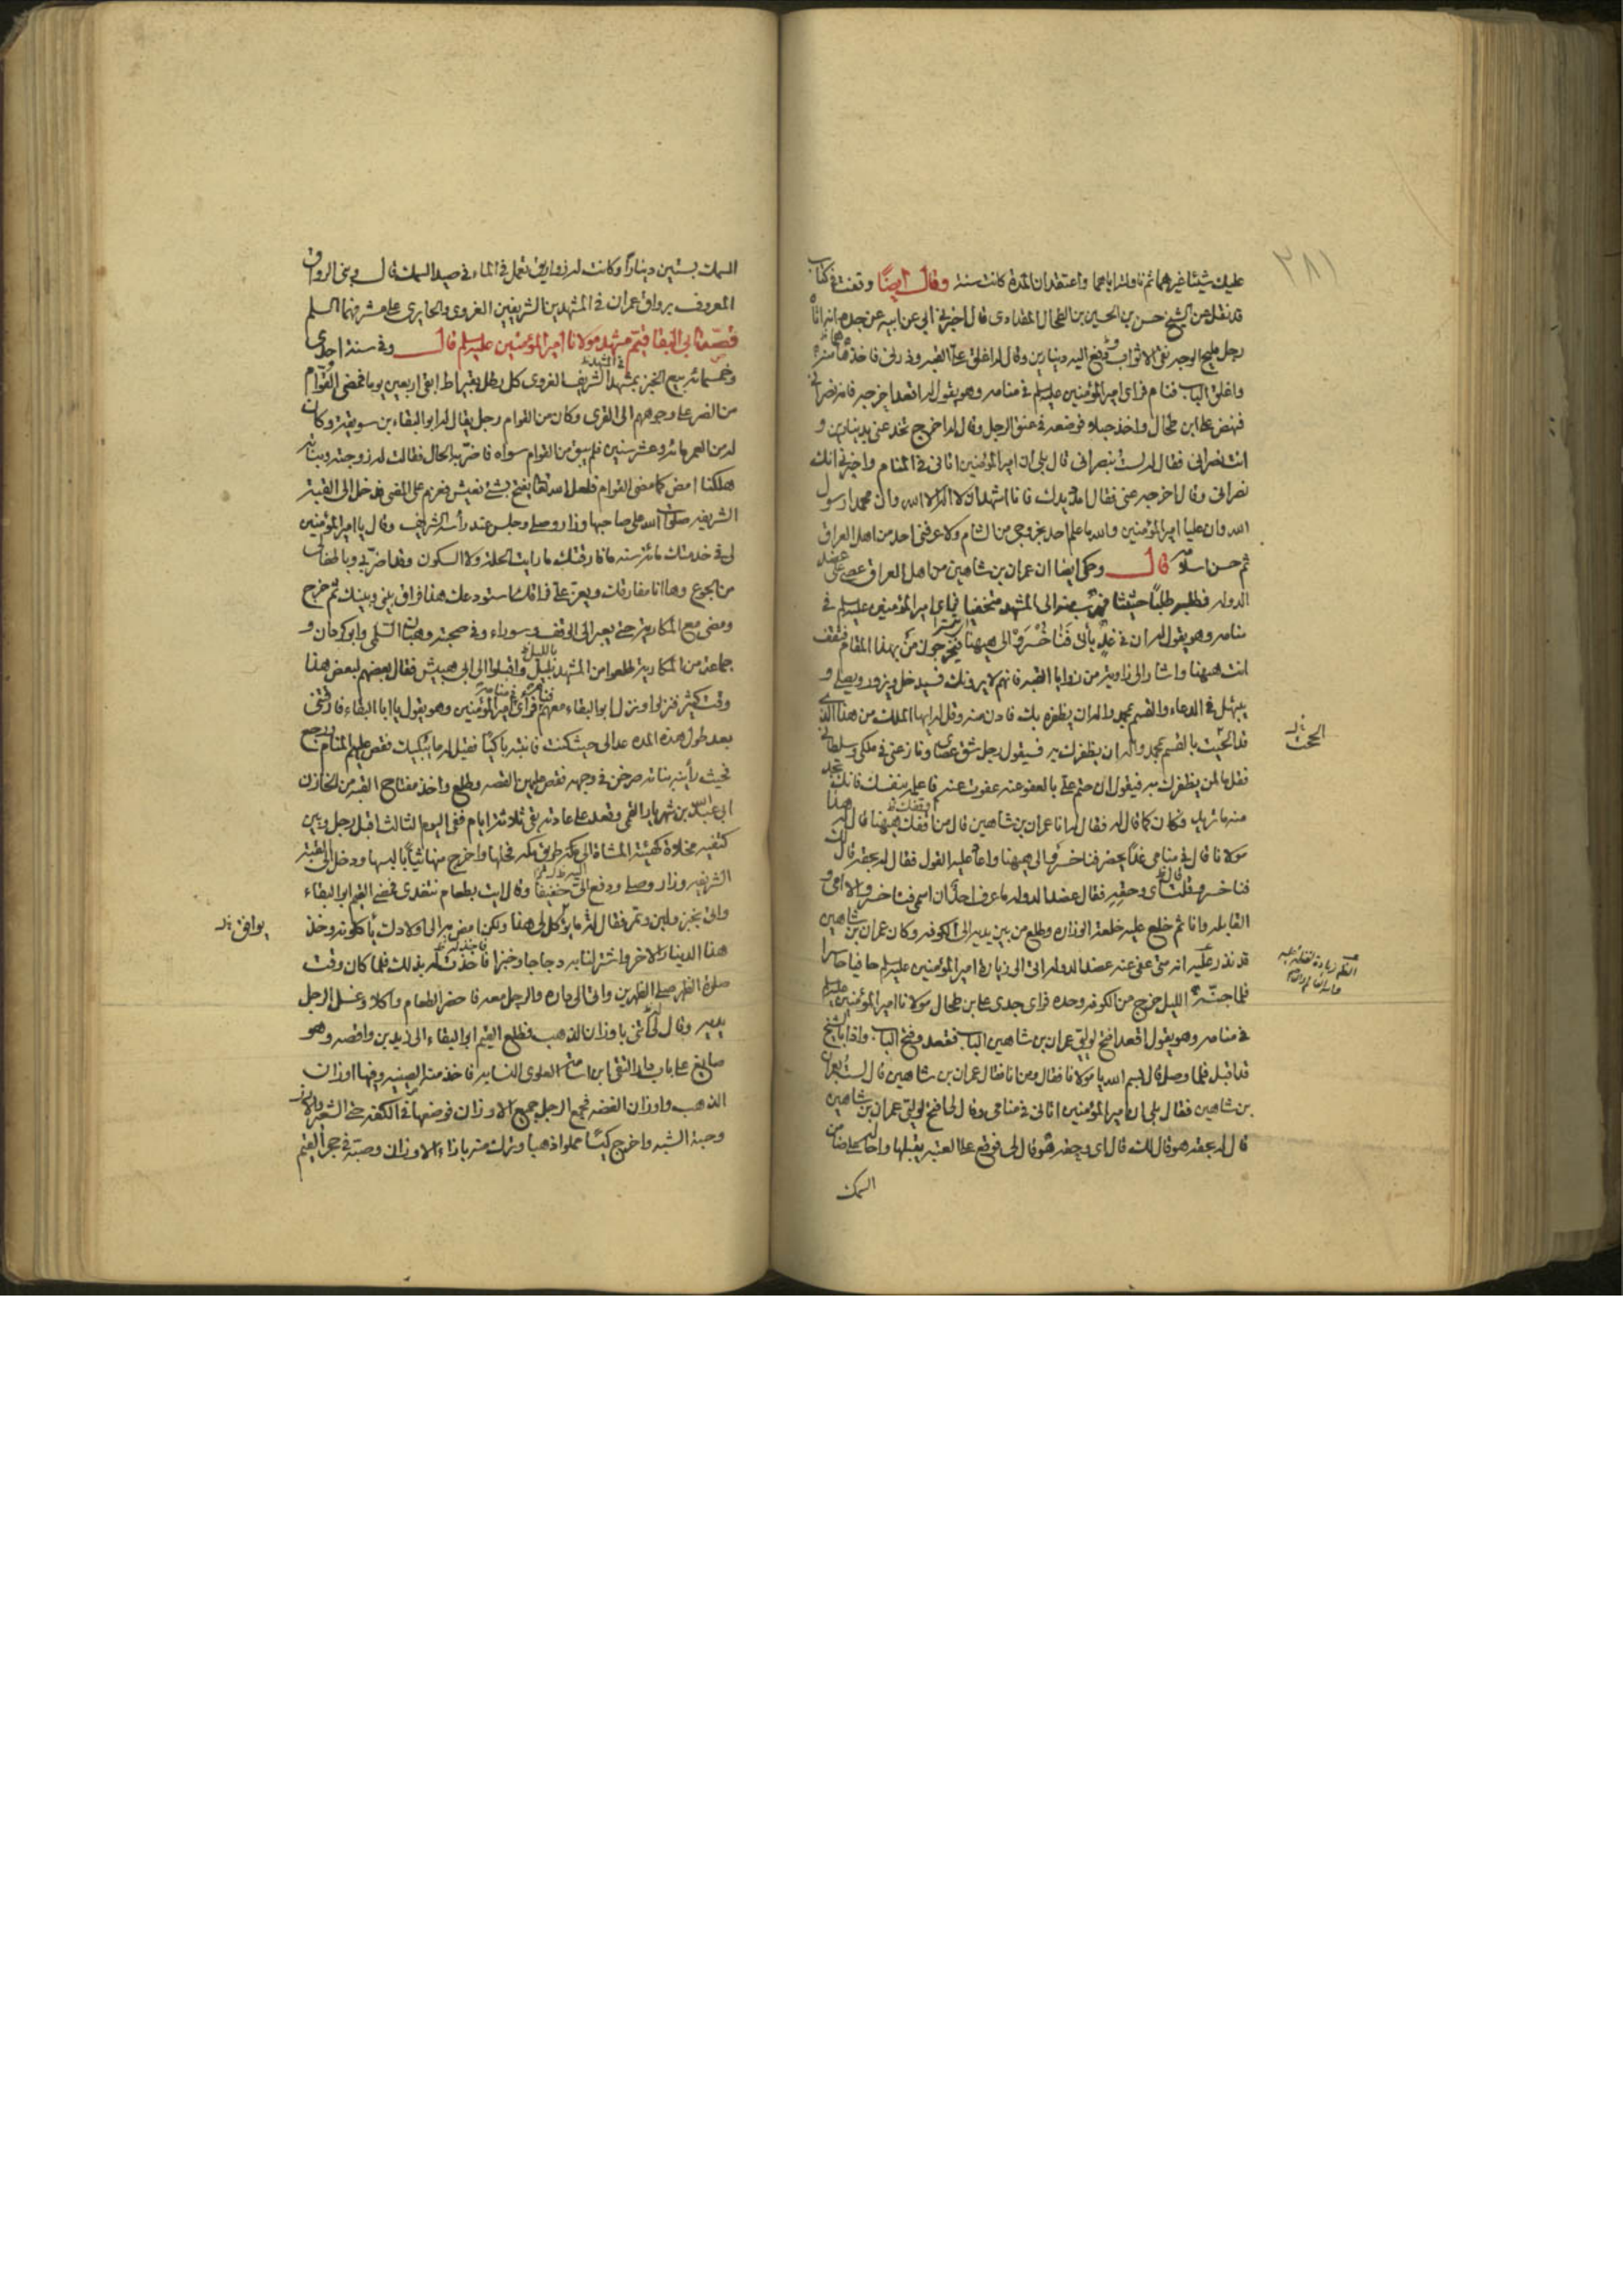 ٢٨١
عليك شيئا غيرهما ثم ناولته اياهما واعتقد ان المدة كانت سنة وقال ايضا وقعت في كتاب
قد نقل عن الشيخ حسن بن الحسين بن الطحال المقدادى قال اخبرنى ابى عن ابيه عن جده انه اتاه
رجل مليح الوجه نقى الاثواب دفع اليه دينارين وقال له اغلق على القبة وذرنى فاخذها منه
واغلق الباب فنام فراى امير المؤمنين عليه السلم في منامه وهو يقول له اقعد اخرجه فانه نصرانى
فنهض على ابن طحال واخذ حبلا فوضعه في عنق الرجل وقال له اخرج تخدعنى بدينارين و
انت نصرانى فقال له لست بنصرانى قال بلى ان امير المؤمنين اتانى في المنام واخبرنى انك
نصرانى وقال اخرجه عنى فقال امدد يدك فانا اشهد ان لا اله الا الله وان محمدا رسول
الله وان عليا امير المؤمنين والله ما علم احد بخروجى من الشام ولا عرفنى احد من اهل العراق
ثم حسن اسلامه قال وحكى ايضا ان عمران بن شاهين من اهل العراق عصى على عضد
الدولة فطلبه طلبا حثيثا فهرب منه الى المشهد متخفيا فراى امير المؤمنين عليه السلم في
منامه وهو يقول له ان في غد يأتى فناخسرو الى ههنا فيخرجون من بهذا المقام فتقف
انت ههنا واشار الى زاوية من زوايا القبة فانهم لا يرونك فسيدخل ويزور ويصلى و
يبتهل في الدعاء والقسم بمحمد واله ان يظفره بك فادن منه وقل له ايها الملك من هذا الذى
قد الححت بالقسم بمحمد واله ان يظفرك به فسيقول رجل شق عصاى ونازعنى في ملكى وسلطانى
فقل ما لمن يظفرك به فيقول ان حتم على بالعفو عنه عفوت عنه فاعلمه بنفسك فانك تجد
منه ما تريد فكان كما قال له فقال له انا عمران بن شاهين قال من اوقفك ههنا قال له هذا
مولانا قال في منامى غدا يحضر فناخسرو الى ههنا واعاد عليه القول فقال له بحقه قال لك
فناخسرو فقلت اى وحقه فقال عضد الدولة ما عرف احد ان اسمى فناخسرو الا امى و
القابلة وانا ثم خلع عليه خلعة الوزارة وطلع من بين يديه الى الكوفة وكان عمران بن شاهين
قد نذر عليه انه متى عفى عنه عضد الدولة اتى الى زيارة امير المؤمنين عليه السلم حافيا حاسرا
فلما جنه الليل خرج من الكوفة وحده فراى جدى على بن طحال مولانا امير المؤمنين عليه السلم
في منامه وهو يقول اقعد افتح لوليى عمران بن شاهين الباب فقعد وفتح الباب واذا بالشيخ
قد اقبل فلما وصل قال بسم الله يا مولانا فقال ومن انا فقال عمران بن شاهين قال لست بعمران
بن شاهين فقال بلى ان امير المؤمنين اتانى في منامى وقال لى افتح لوليى عمران بن شاهين
قال له بحقه هو قال لك قال اى وحقه هو قال لى فوقع على العتبة يقبلها واحاله على ضامن
السمك
الححت
السمك بستين دينارا وكانت له زواريق تعمل في الماء في صيد السمك قال وبنى الرواق
المعروف برواق عمران في المشهدين الشريفين الغروى والحايرى على مشرفهما السلم
قصة ابى البقا قيم مشهد مولانا امير المؤمنين عليه السلم قال وفى سنة احدى
وخمسمائة بيع الخبز بمشهد الشريف الغروى كل رطل بقيراط ابقى اربعين يوما فمضى القوام
من الضر على وجوههم الى القرى وكان من القوام رجل يقال له ابو البقاء بن سويقة وكان
له من العمر مائة وعشر سنين فلم يبق من القوام سواه فاضر به الحال فقالت له زوجته وبناته
هلكنا امض كما مضى القوام فلعل الله تعالى يفتح بشئ نعيش به فعزم على المضى فدخل الى القبة
الشريفة صلوات الله على صاحبها وزار وصلى وجلس عند رأسه الشريف وقال يا امير المؤمنين
لى في خدمتك مائة سنة ما فارقتك ما رايت الحلة ولا السكون وقد اضر بى وباطفالى
من الجوع وها انا مفارقك ويعز على فراقك استودعك هذا فراق بينى وبينك ثم خرج
ومضى مع المكارية حتى يعبر الى الوقف وسوراء وفى صحبته وهبان السلمى وابو كردان و
جماعة من المكارية طلعوا من المشهد بليل واقبلوا الى ابى هبيش فقال بعضهم لبعض هذا
وقت كثير فنزلوا ونزل ابو البقاء معهم فراى امير المؤمنين وهو يقول يا ابا البقاء فارقتنى
بعد طول هذه المدة عد الى حيث كنت فانتبه باكيا فقيل له ما يبكيك فقص عليهم المنام ورجع
فحيث رأينه بناته صرخن في وجهه فقص عليهن القصة وطلع واخذ مفتاح القبة من الخازن
ابى عبد الله بن شهريار القمى وقعد على عادته بقى ثلاثة ايام ففى اليوم الثالث اقبل رجل وبين
كتفيه مخلاة كهيئة المشاة الى طريق مكة فحلها واخرج منها ثيابا لبسها ودخل الى القبة
الشريفة وزار وصلى ودفع الى خفيفا وقال ايت بطعام نتغدى فمضى القيم ابو البقاء
واتى بخبز ولبن وتمر فقال له ما يؤكل لى هذا ولكن امض به الى اولادك يأكلونه وخذ
هذا الدينار الاخر واشتر لنا به دجاجا وخبزا فاخذت له بذلك فلما كان وقت
صلوة الظهر صلى الظهرين واتى الى داره والرجل معه فاحضر الطعام واكلا وغسل الرجل
يديه وقال لى ائتنى باوزان الذهب فطلع القيم ابو البقاء الى زيد بن واقصة وهو
صايغ على باب دار التقى ابن اسامة العلوى النسابة فاخذ منه الصينية وفيها اوزان
الذهب واوزان الفضة فجمع الرجل جميع الاوزان فوضعها في الكفة حتى الشعير والارز
وحبة الشبه واخرج كيسا مملوا ذهبا وترك منه بازاء الاوزان وصبه في حجر القيم
يوافق